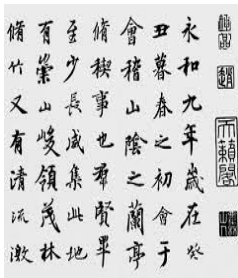 永和九年歲在癸
丑暮春之初會于
會稽山陰之蘭亭
脩稧事也羣賢畢
至少長咸集此地
有崇山峻領茂林
脩竹又有清流激
趙
天籟閣